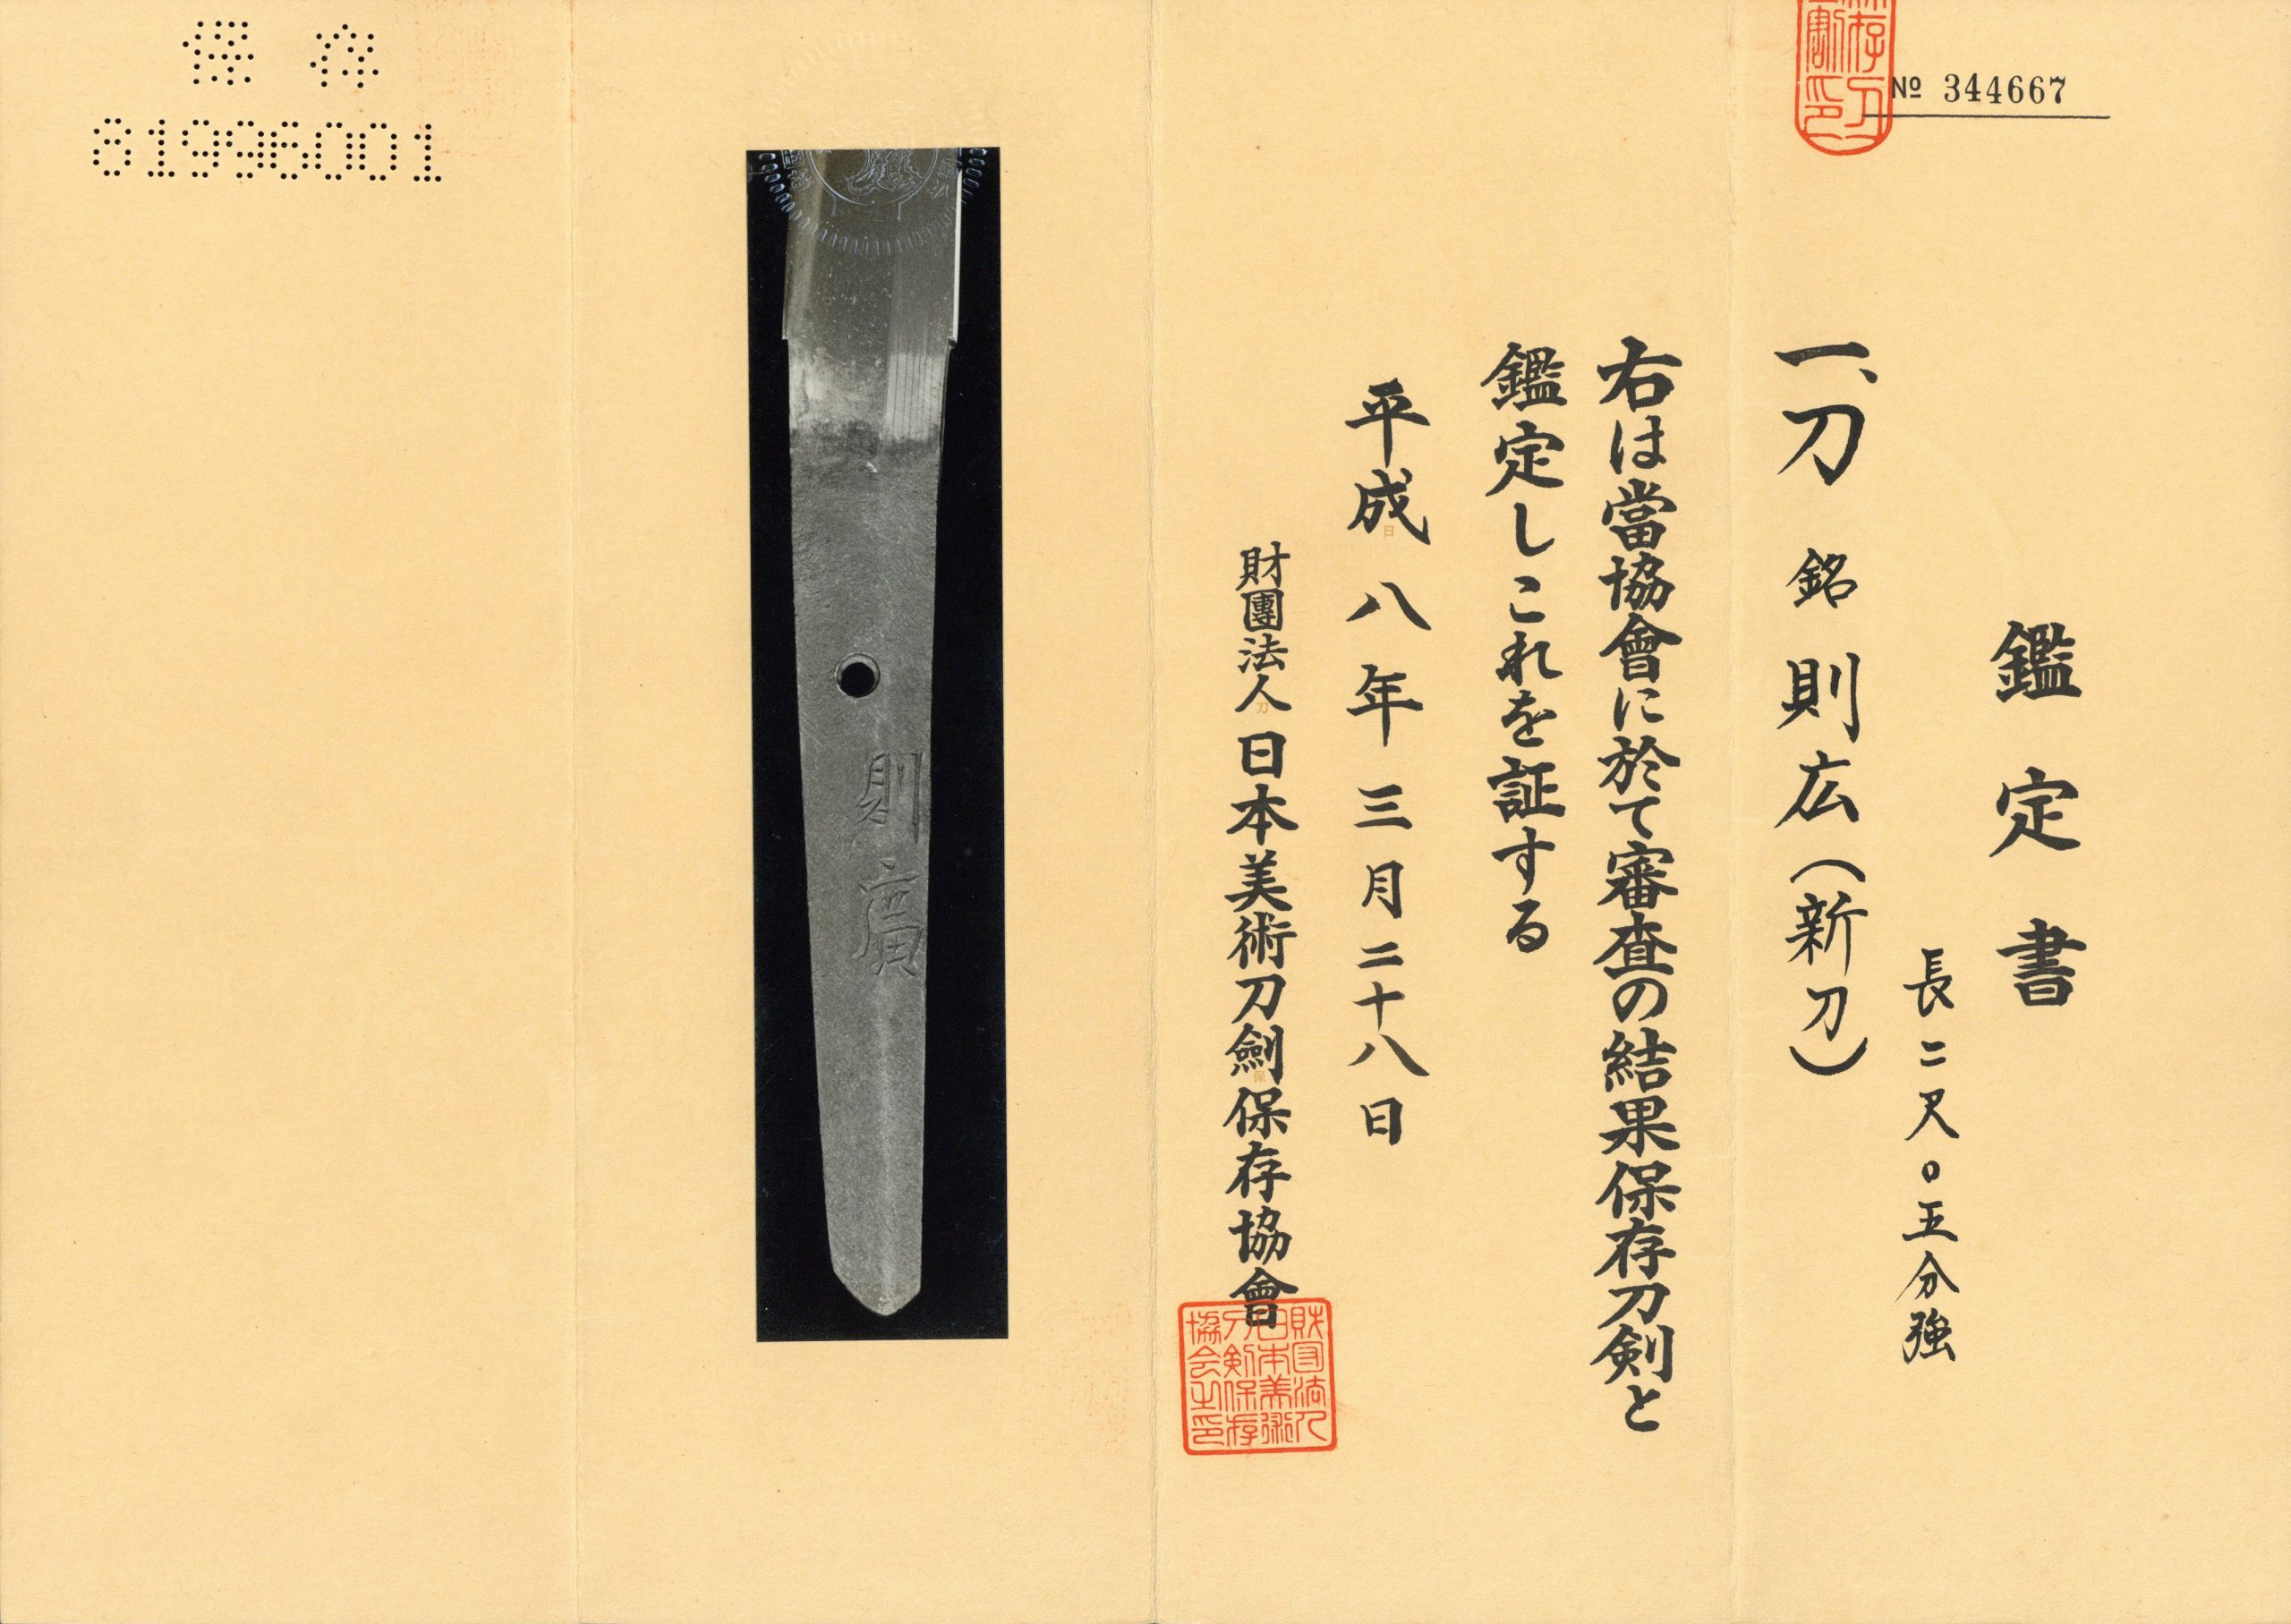 № 344667
鑑定書
長二尺〇五分強
一、刀 銘 則広(新刀)
右は當協會に於て審査の結果保存刀剣と
鑑定しこれを証する
平成八年三月二十八日
財團法人日本美術刀劍保存協會
財団法人
日本美術
刀剣保存
協会之印
則廣
保存
81996001